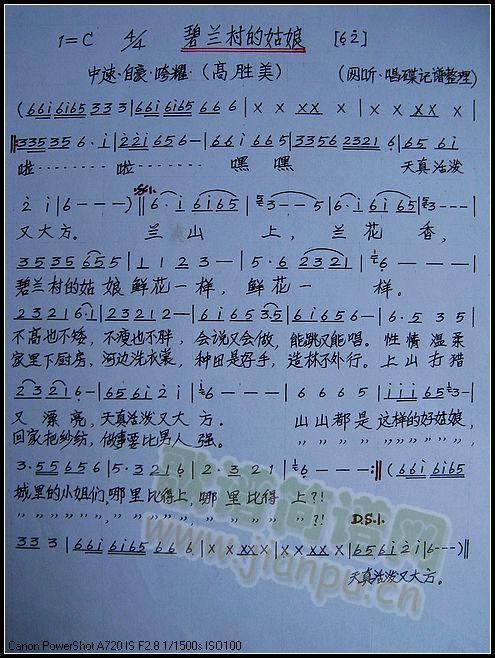 1=C 4/4 碧兰村的姑娘 [6 2]
中速·自豪·夸耀·(高胜美) (网听·唱碟记谱整理)
(661 6165 33 3 | 661 6165 66 6 | X X XX X | X XX XX X |
335 35 6·1 | 221 65 6- | 661 6 665 | 3356 2321 6 | 65 61
啦……… 啦……… 嘿 嘿 天真活泼
2 1 | 6 - - -) || 6·1 6165 | 3 - - 5 | 6·1 6165 | 3 - - - |
又大方。 兰 山 上, 兰 花 香,
35 35 655 | 1 1 2 3 - | 5·6 2321 | 6 - - - |
碧兰村的姑娘鲜花一样, 鲜花一 样。
2321 61 | 2321 2- | 661 65 3·5 | 6165 6 - | 6·5 3 5 |
不高也不矮, 不瘦也不胖, 会说又会做, 能跳又能唱。 性情温柔
家里下厨房, 河边洗衣裳, 种田是好手, 造林不外行。 上山打猎
2321 6 - | 65 61 2 1 | 6 - - - | 6 6 6 5 | 111 65 3 - |
又 漂亮, 天真活泼又大方。 山山都是这样的好姑娘,
回家把纱纺, 做事要比男人强。 〃 〃 〃 〃 〃 〃 〃 〃 〃 〃
3·5 565 6 | 5·3 21 6 | 2·3 21 | 6 - - :|| (661 6165
城里的小姐们, 哪里比得上, 哪里比得上?!
〃 〃 〃 〃 〃 〃, 〃 〃 〃 〃 〃, 〃 〃 〃 〃 〃?! D.S.1.
33 3 | 661 6165 66 6 | X X XX X | X XX XX X | 65 61 2 1 | 6 - - -) ||
天真活泼又大方。
歌谱简谱网
www.jianpu.cn
Canon PowerShot A720 IS F2.8 1/1500s ISO100